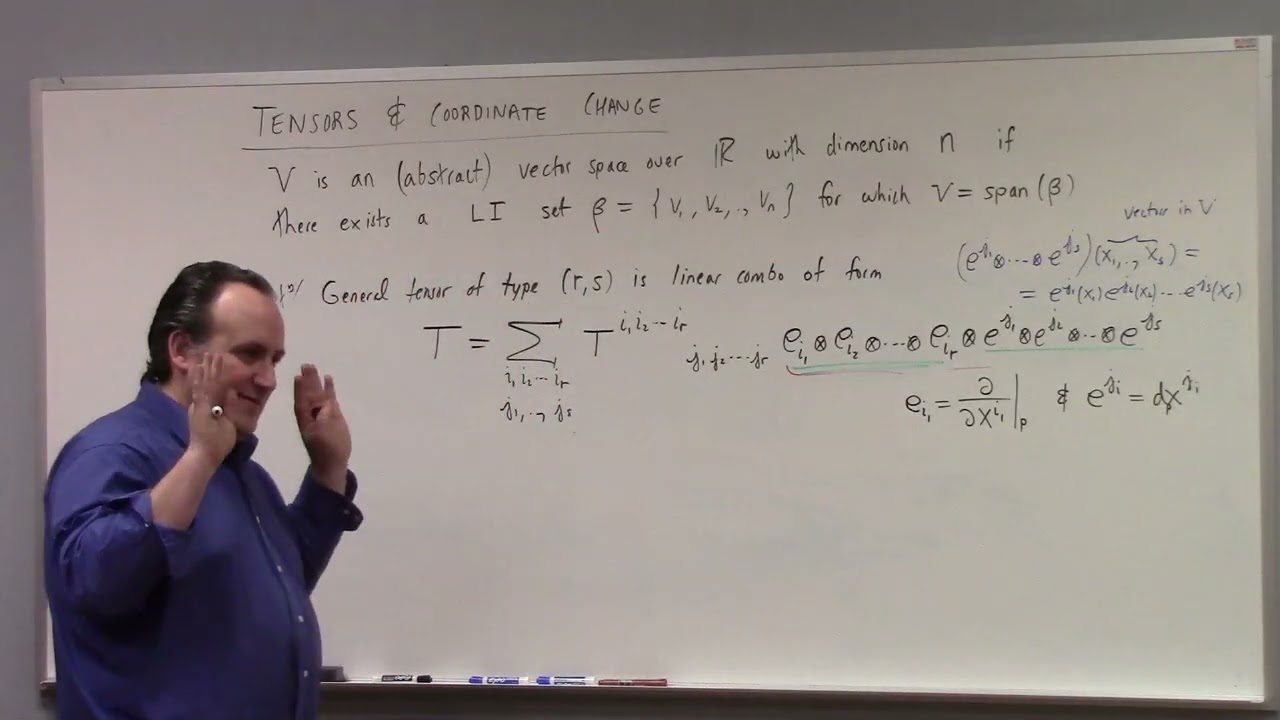 TENSORS & COORDINATE CHANGE
V is an (abstract) vector space over ℝ with dimension n if
there exists a LI set β = { V₁, V₂, .., Vₙ } for which V = span(β)
vectors in V
(e^{j₁} ⊗ ··· ⊗ e^{jₛ})(x₁, .., xₛ) =
= e^{j₁}(x₁) e^{j₂}(x₂) ··· e^{jₛ}(xₛ)
General tensor of type (r,s) is linear combo of form
T = Σ_{i₁ i₂ ··· iᵣ j₁, .., jₛ} T^{i₁ i₂ ··· iᵣ}_{j₁ j₂ ··· jᵣ} e_{i₁} ⊗ e_{i₂} ⊗ ··· ⊗ e_{iᵣ} ⊗ e^{j₁} ⊗ e^{j₂} ⊗ ··· ⊗ e^{jₛ}
e_{i₁} = ∂/∂x^{i₁}|_p & e^{j₁} = d_p x^{j₁}